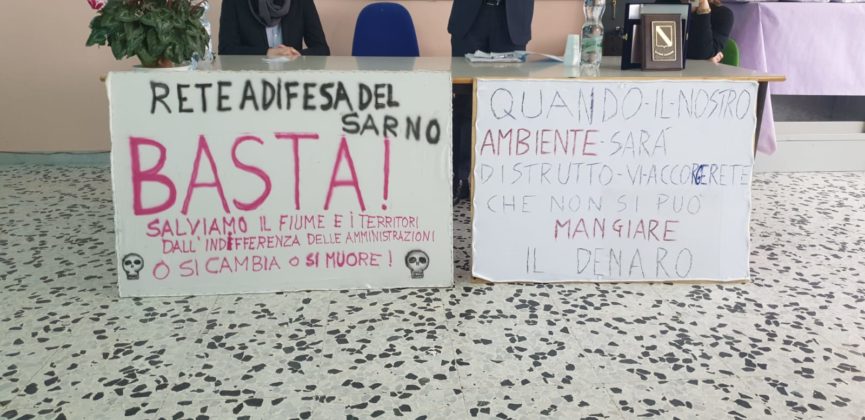 RETE A DIFESA DEL
SARNO
BASTA!
SALVIAMO IL FIUME E I TERRITORI
DALL'INDIFFERENZA DELLE AMMINISTRAZIONI
O SI CAMBIA O SI MUORE!
QUANDO·IL·NOSTRO
AMBIENTE·SARÁ
DISTRUTTO·VI ACCORGERETE
CHE NON SI PUÓ
MANGIARE
IL DENARO